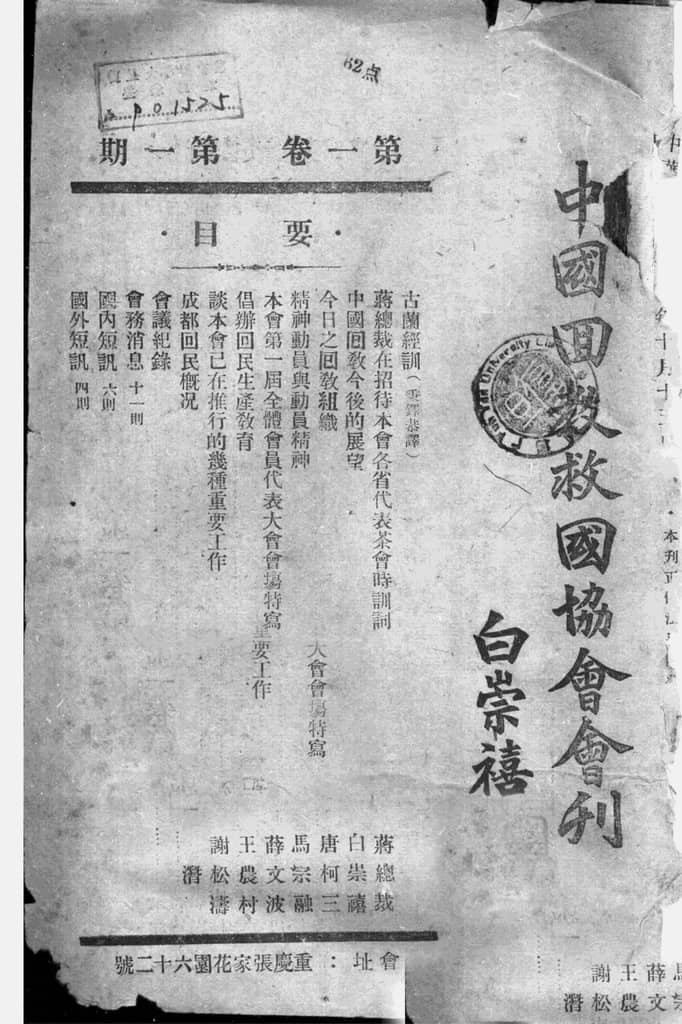 中國回教救國協會會刊
白崇禧
82点
901525
第一卷 第一期
·要目·
古蘭經訓
蔣總裁在招待本會各省代表茶會時訓詞 蔣總裁
中國回教今後的展望 白崇禧
今日之回教組織 唐柯三
精神動員與動員精神 馬宗融
本會第一屆全體會員代表大會會場特寫 薛文波
倡辦回民生產教育 王農村
談本會已在推行的幾種重要工作 謝松濤
成都回民概况 潛
會議紀錄
會務消息 十一則
國內短訊 六則
國外短訊 四則
大會會場特寫
重要工作
會址：重慶張家花園六十二號
University
本刊正
薛文
王農
謝松
潛